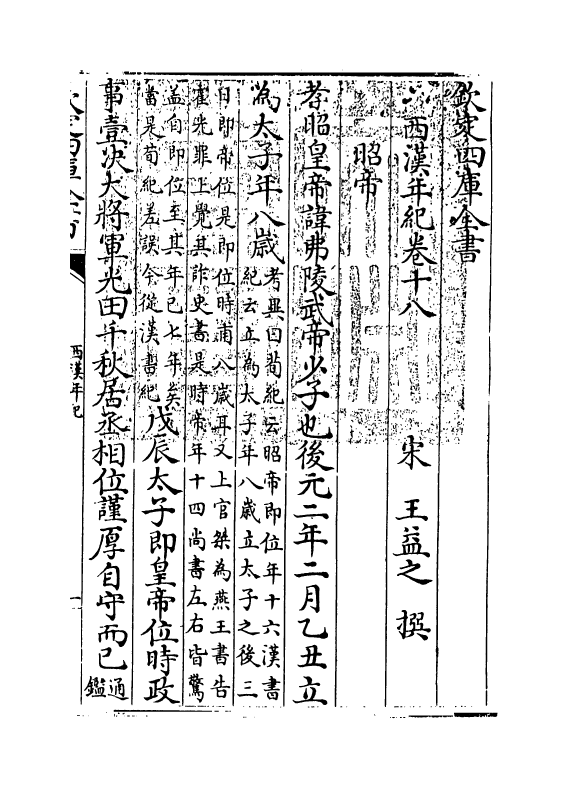 欽定四庫全書
西漢年紀卷十八
宋 王益之 撰
昭帝
孝昭皇帝諱弗陵武帝少子也後元二年二月乙丑立
為太子年八歲
考異曰荀紀云昭帝即位年十六漢書
紀云立為太子年八歲立太子之後三
日即帝位是即位時甫八歲耳又上官桀為燕王書告
霍光罪上覺其詐史書是時帝年十四尚書左右皆驚
蓋自即位至其年已七年矣
當是荀紀差誤今從漢書紀
戊辰太子即皇帝位時政
事壹決大將軍光田千秋居丞相位謹厚自守而已
通
鑑
西漢年紀
一